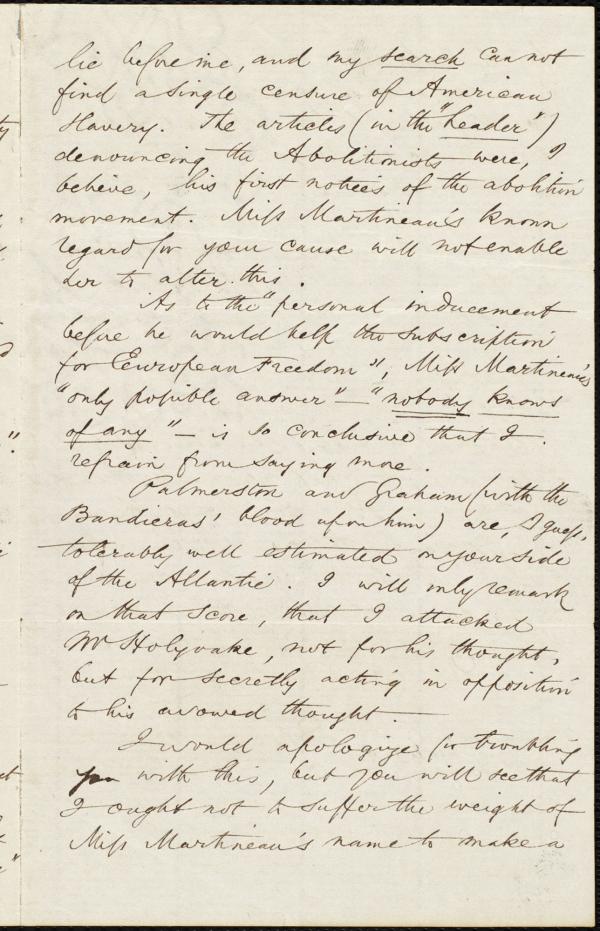 lie before me, and my search cannot
find a single censure of American
slavery. The articles (in the "Leader")
denouncing the Abolitionists were, I
believe, his first notices of the abolition
movement. Miss Martineau's known
regard for your cause will not enable
her to alter this.
As to the "personal inducement
before he would help the subscription
for European Freedom", Miss Martineau's
"only possible answer" — "nobody knows
of any" — is so conclusive that I
refrain from saying more.
Palmerston and Graham (with the
Bandieras' blood upon him) are, I guess,
tolerably well estimated on your side
of the Atlantic. I will only remark
on that score, that I attacked
Mr Holyoake, not for his thought,
but for secretly acting in opposition
to his avowed thought.
I would apologize for troubling
you with this, but you will see that
I ought not to suffer the weight of
Miss Martineau's name to make a